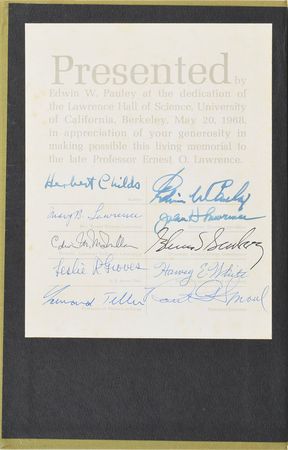 Presented by
Edwin W. Pauley at the dedication of
the Lawrence Hall of Science, University
of California, Berkeley, May 20, 1968,
in appreciation of your generosity in
making possible this living memorial to
the late Professor Ernest O. Lawrence.
Herbert Childs
Edwin W Pauley
Mary B Lawrence
Edwin M McMillan
Leslie R Groves
Harvey E White
Edward Teller